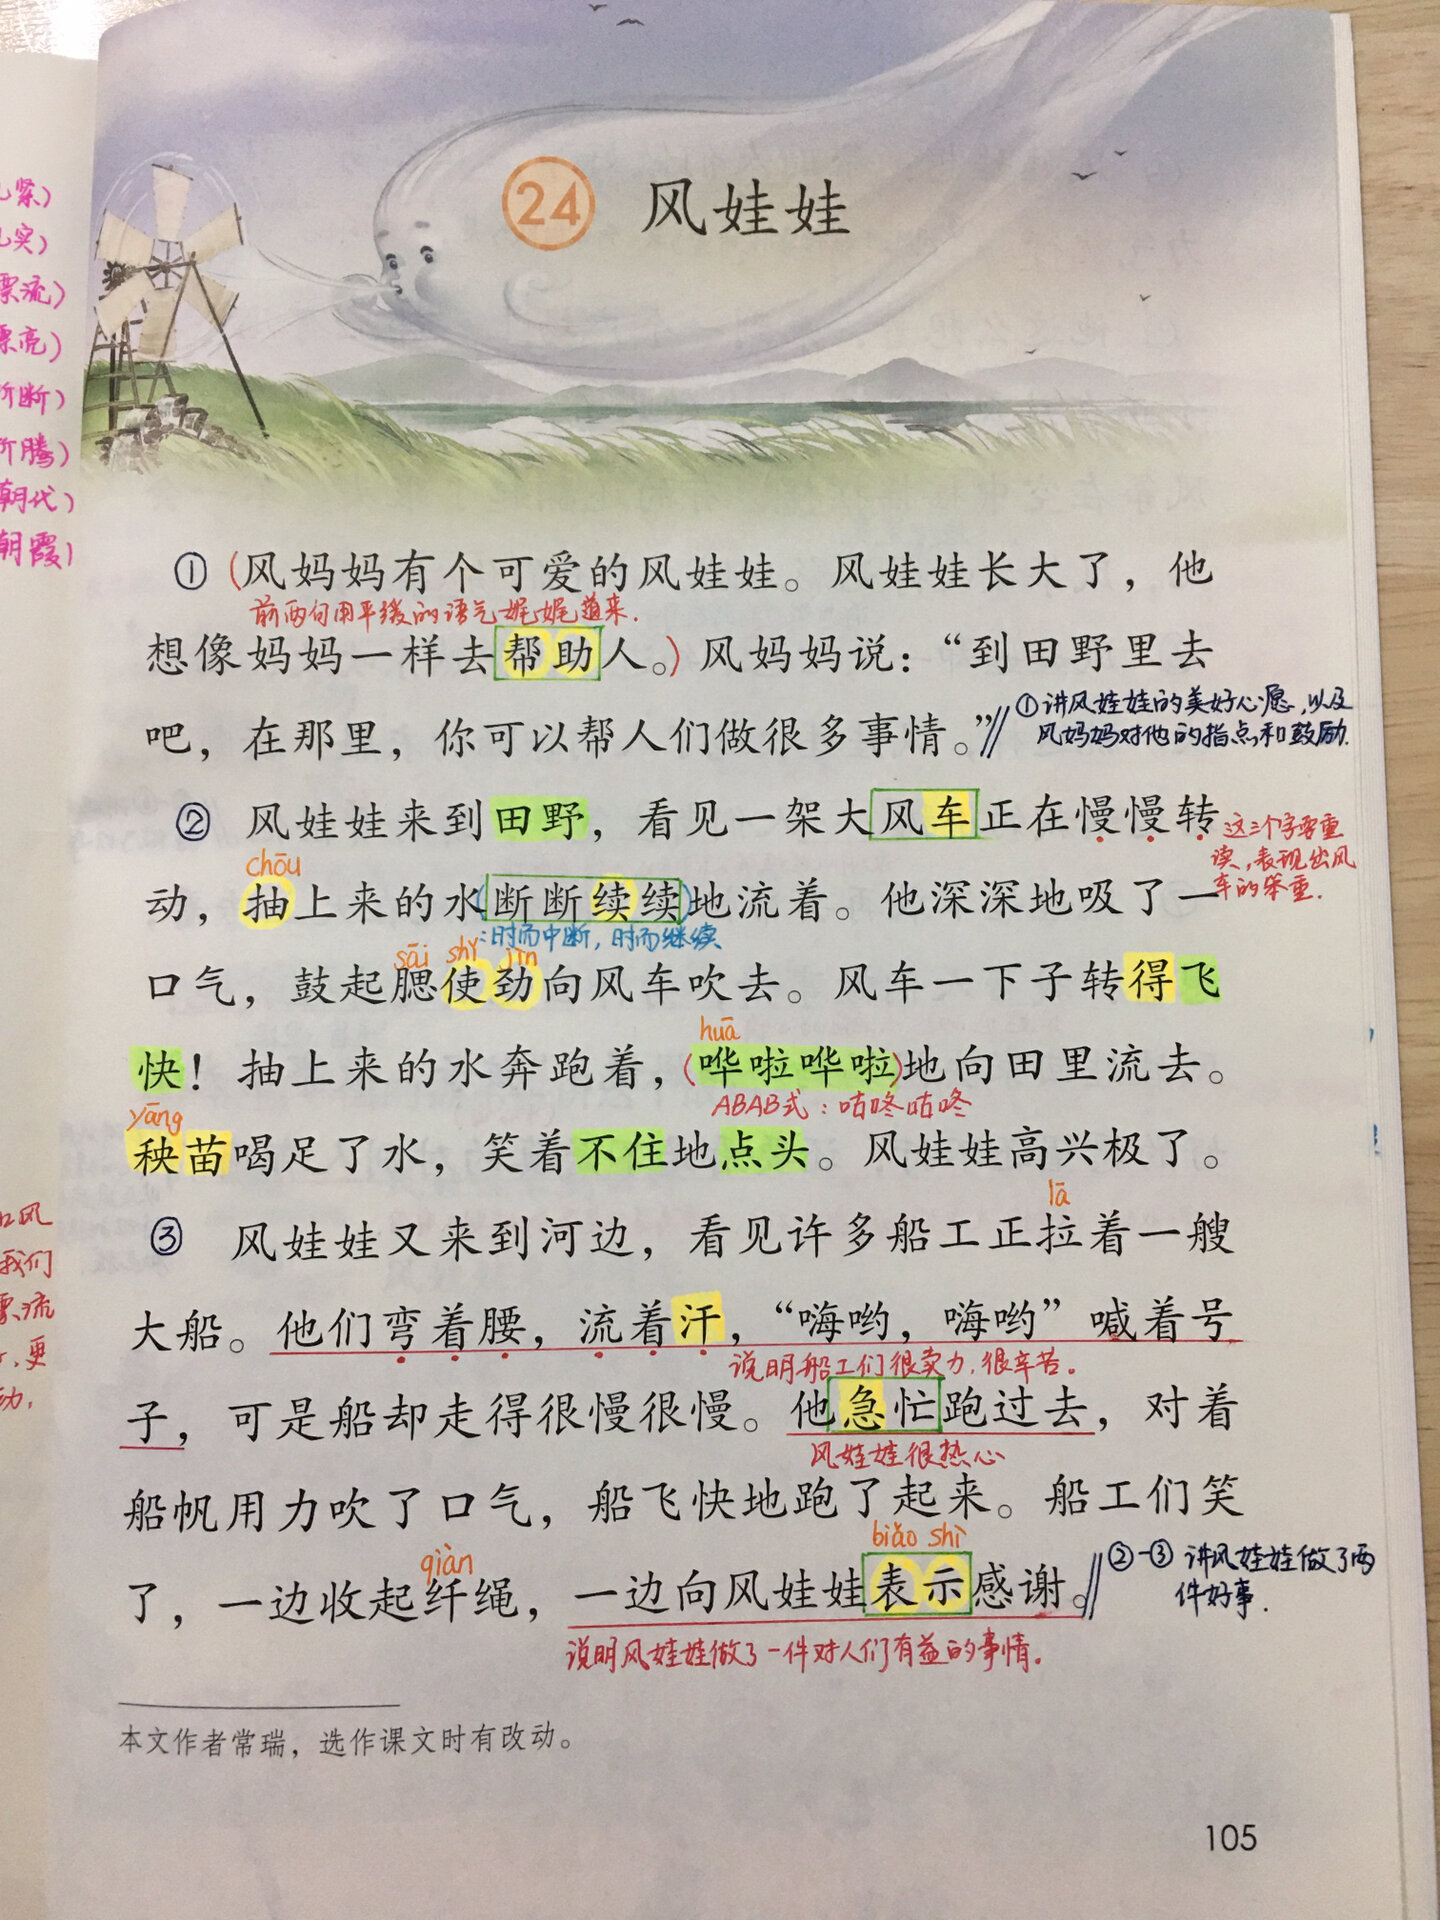 24 风娃娃
紧)
实)
漂流)
漂亮)
折断)
折腾)
朝代)
朝霞)
① (风妈妈有个可爱的风娃娃。风娃娃长大了，他
前两句用平缓的语气娓娓道来.
想像妈妈一样去帮助人。) 风妈妈说：“到田野里去
吧，在那里，你可以帮人们做很多事情。”
①讲风娃娃的美好心愿,以及
风妈妈对他的指点和鼓励.
② 风娃娃来到田野，看见一架大风车正在慢慢转
这三个字要重
读,表现出风
车的笨重.
chōu
动，抽上来的水(断断续续)地流着。他深深地吸了一
:时而中断,时而继续
sāi shǐ jìn
口气，鼓起腮使劲向风车吹去。风车一下子转得飞
huā
快！抽上来的水奔跑着，(哗啦哗啦)地向田里流去。
ABAB式：咕咚咕咚
yāng
秧苗喝足了水，笑着不住地点头。风娃娃高兴极了。
lā
③ 风娃娃又来到河边，看见许多船工正拉着一艘
大船。他们弯着腰，流着汗，“嗨哟，嗨哟”喊着号
说明船工们很卖力,很辛苦。
子，可是船却走得很慢很慢。他急忙跑过去，对着
风娃娃很热心
船帆用力吹了口气，船飞快地跑了起来。船工们笑
qiàn
biǎo shì
了，一边收起纤绳，一边向风娃娃表示感谢。
②-③ 讲风娃娃做了两
件好事.
说明风娃娃做了一件对人们有益的事情。
风
我们
漂流
,更
动,
本文作者常瑞，选作课文时有改动。
105